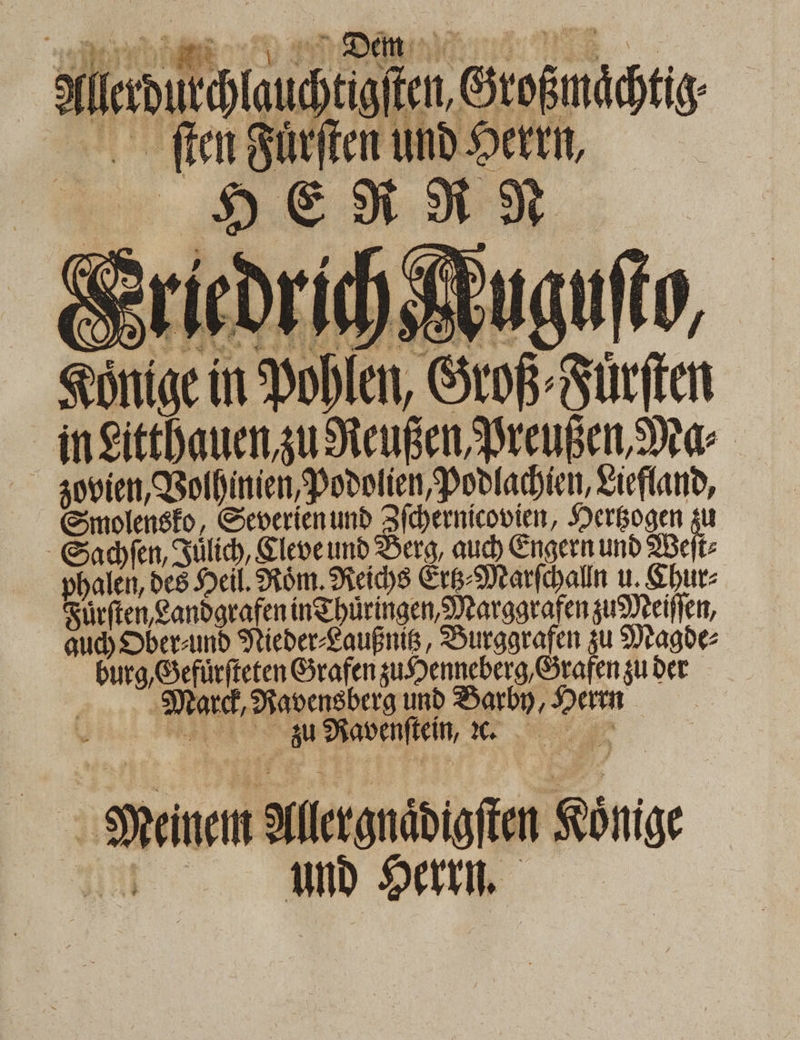 Dem
Allerdurchlauchtigſten, Großmaͤchtig⸗
ſten Fuͤrſten und Herrn,
HERRN
Friedrich Auguſto,
Koͤnige in Pohlen, Groß⸗Fuͤrſten
in Litthauen, zu Reußen, Preußen, Ma⸗
zovien, Volhinien, Podolien, Podlachien, Liefland,
Smolensko, Severien und Zſchernicovien, Hertzogen zu
Sachſen, Juͤlich, Cleve und Berg, auch Engern und Weſt⸗
phalen, des Heil. Roͤm. Reichs Ertz⸗Marſchalln u. Chur⸗
Fuͤrſten, Landgrafen in Thuͤringen, Marggrafen zu Meiſſen,
auch Ober⸗und Nieder⸗Laußnitz, Burggrafen zu Magde⸗
burg, Gefuͤrſteten Grafen zu Henneberg, Grafen zu der
Marck, Ravensberg und Barby, Herrn
zu Ravenſtein, ꝛc.
Meinem Allergnaͤdigſten Koͤnige
und Herrn.